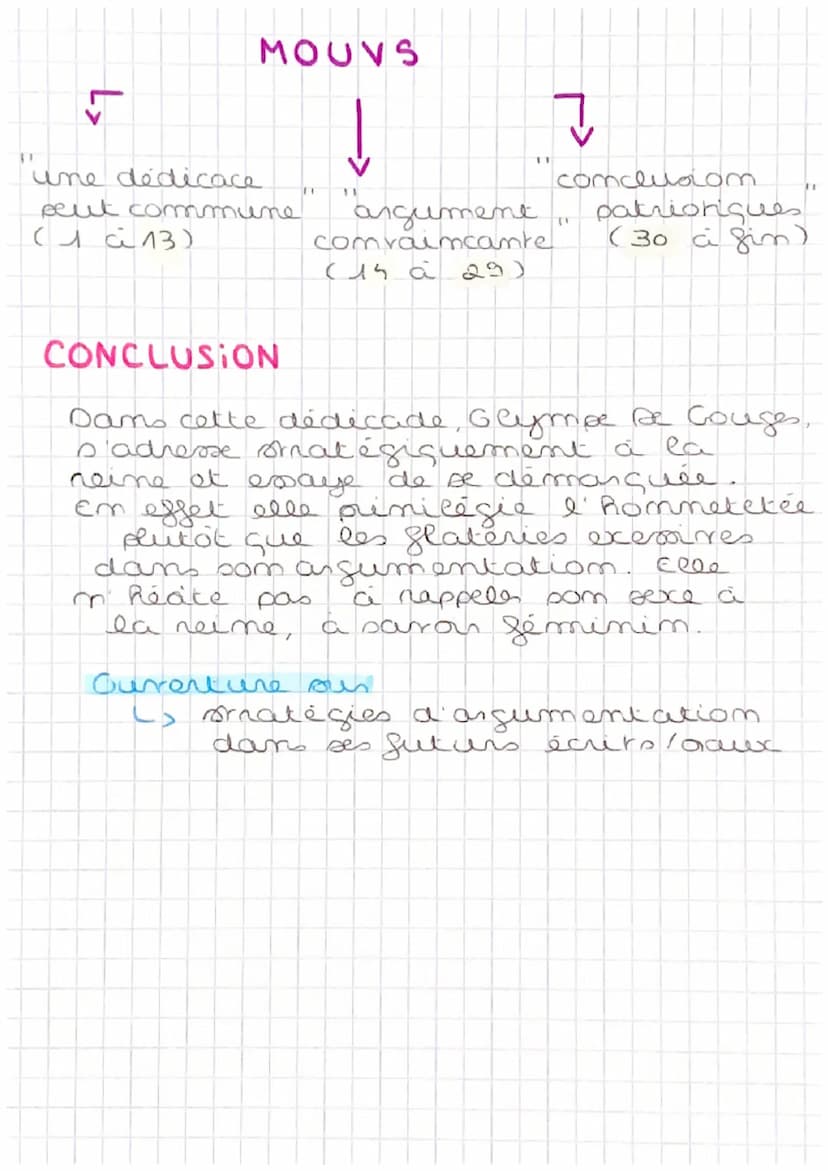 MOUVS
"une dédicace
peut commune"
(1 à 13)
"argument
convaincante"
(14 à 29)
"conclusion
patrioriques"
(30 à fin)
CONCLUSiON
Dans cette dédicade, Olympe De Gouges,
s'adresse stratégiquement à la
reine et essaye de se démarquée.
En effet elle privilégie l'honnetetée
plutôt que les flateries excessives
dans son argumentation. Elle
n'hésite pas à rappeler son sexe à
la reine, à savoir féminin.
Ouverture sur
↳ stratégies d'argumentation
dans ses futurs écrits/oraux